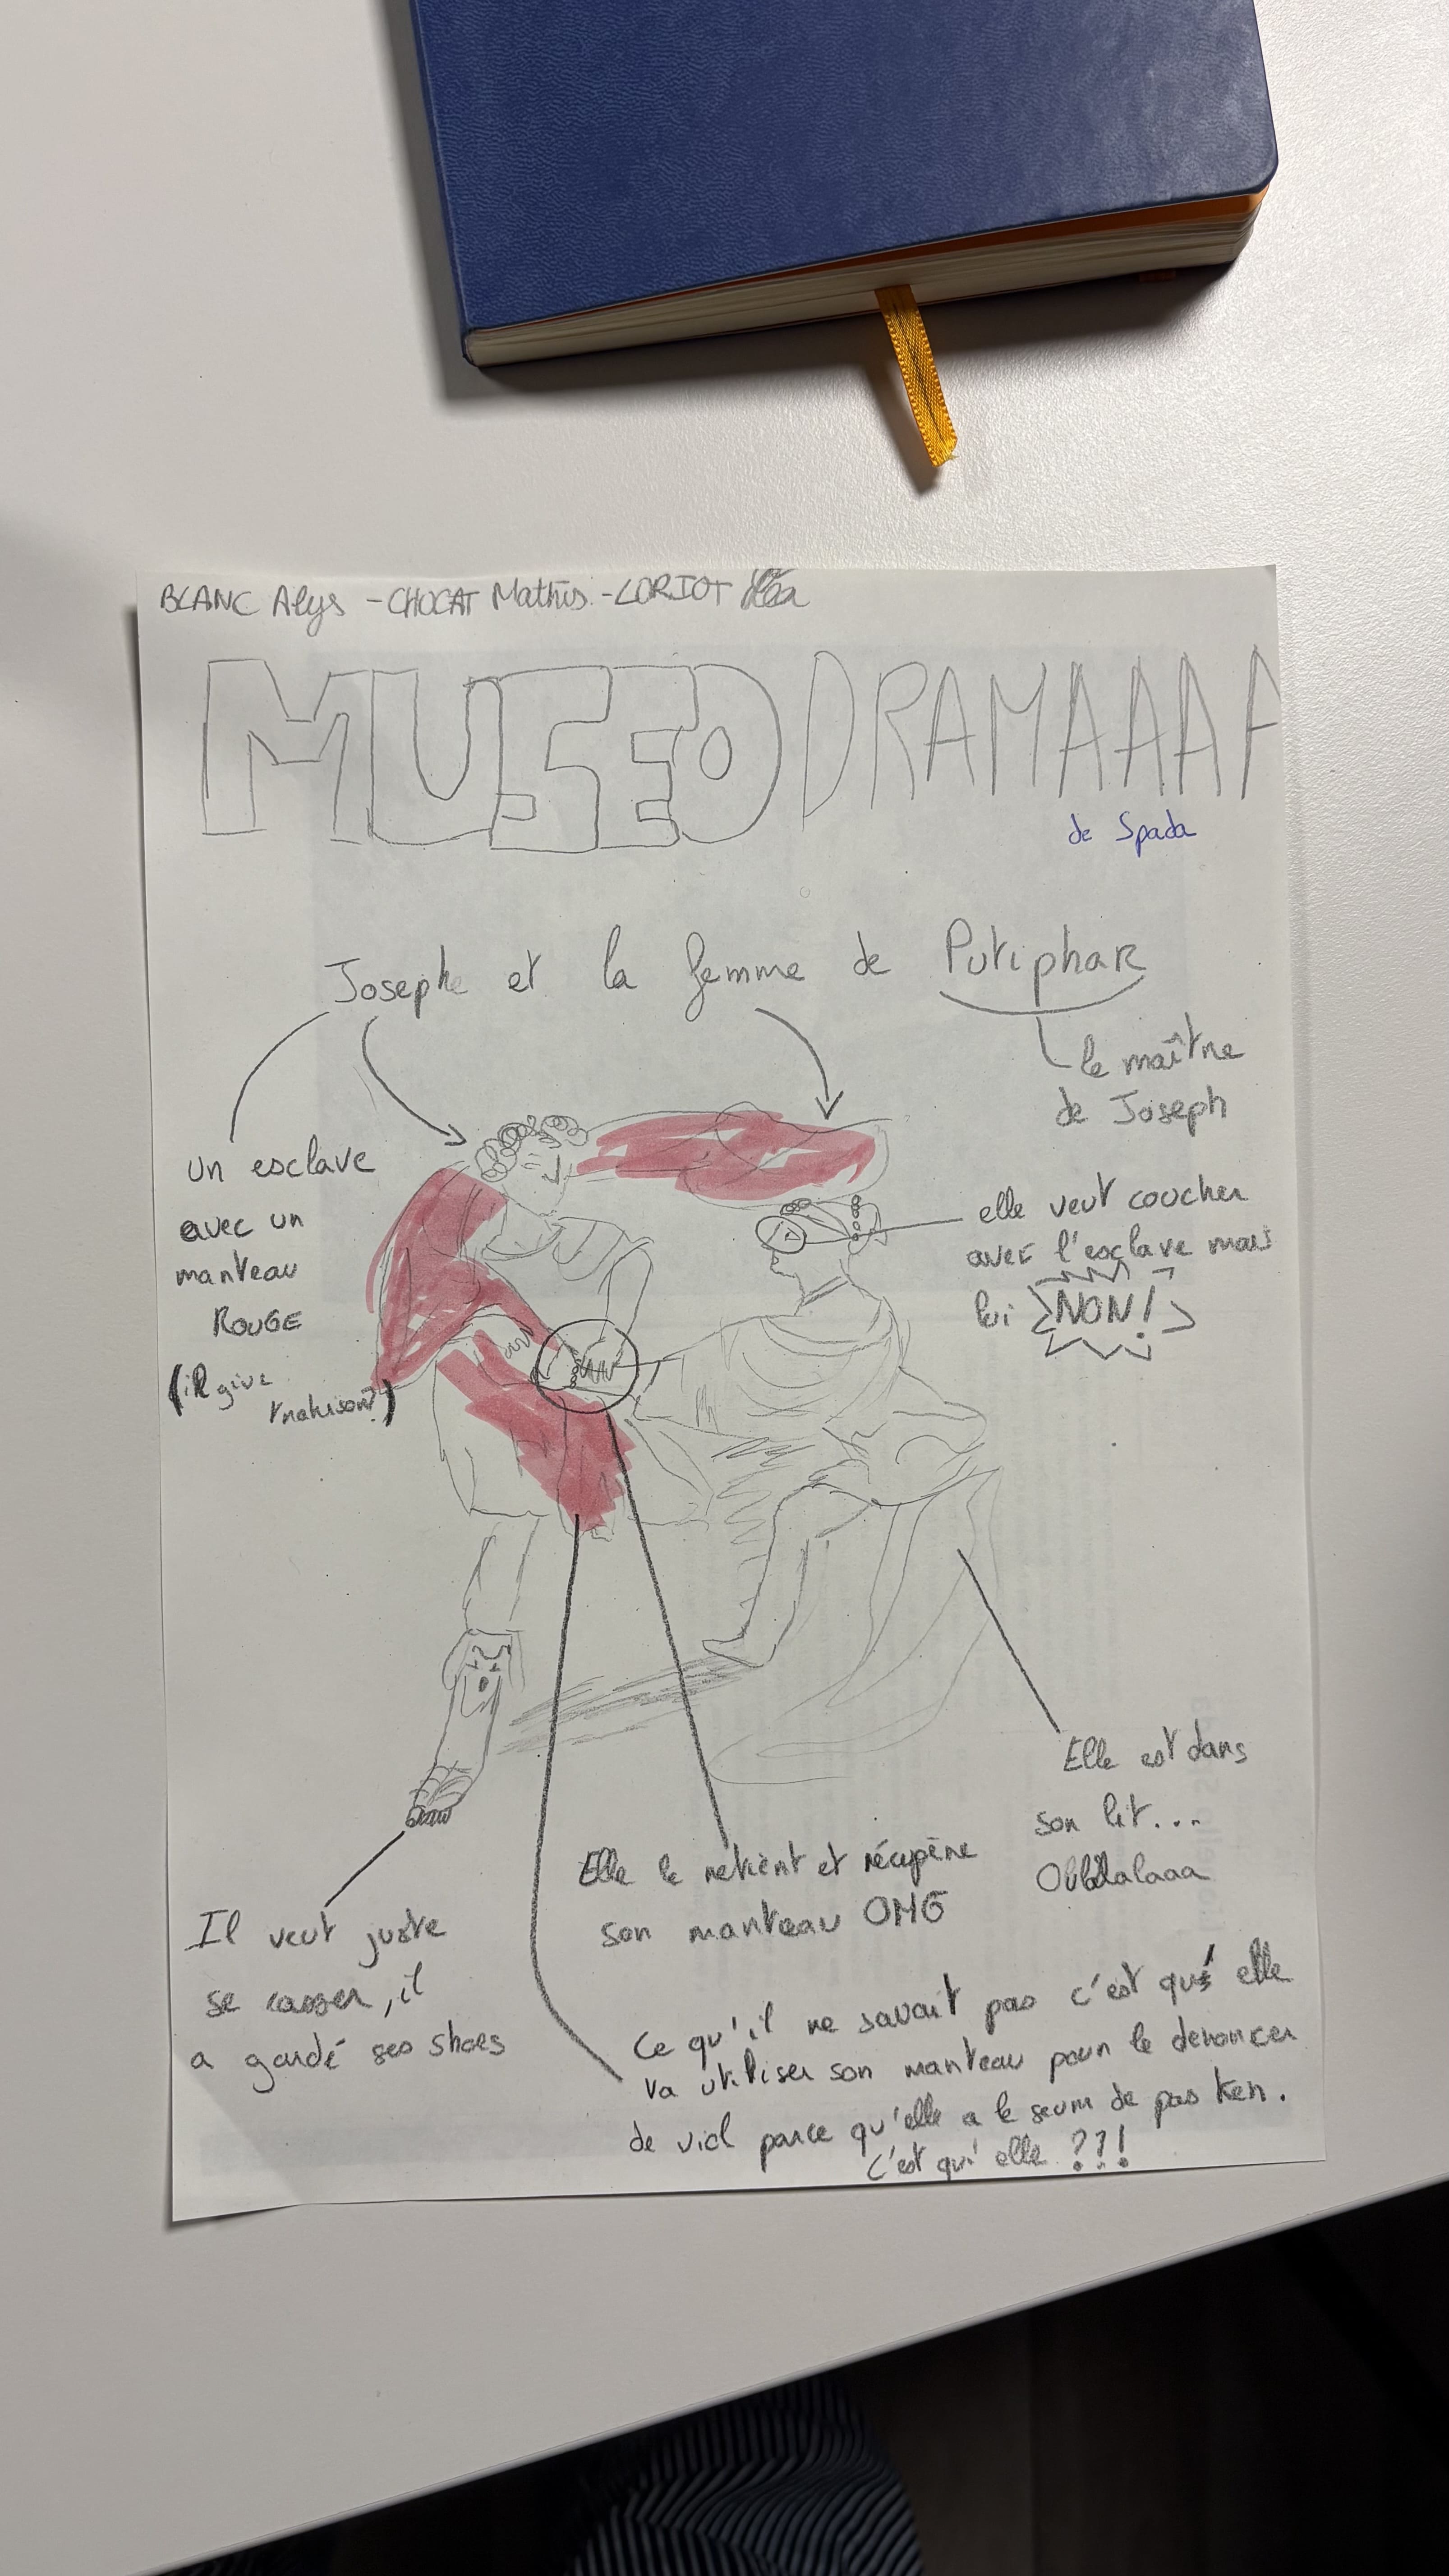 BLANC Alys - CHOCAT Mathis - LORIOT Léa
MUSEO DRAMAAAA
de Spada
Joseph et la femme de Putiphar
le maître
de Joseph
un esclave
avec un
manteau
ROUGE
(iR give
trahison?)
elle veut coucher
avec l'esclave mais
lui NON!
Elle est dans
son lit...
Elle le retient et récupère
son manteau OMG
Il veut juste
se casser, il
a gardé ses shoes
Ce qu'il ne savait pas c'est qu' elle
va utiliser son manteau pour le dénoncer
de viol parce qu'elle a le seum de pas ken.
C'est qui elle ??!